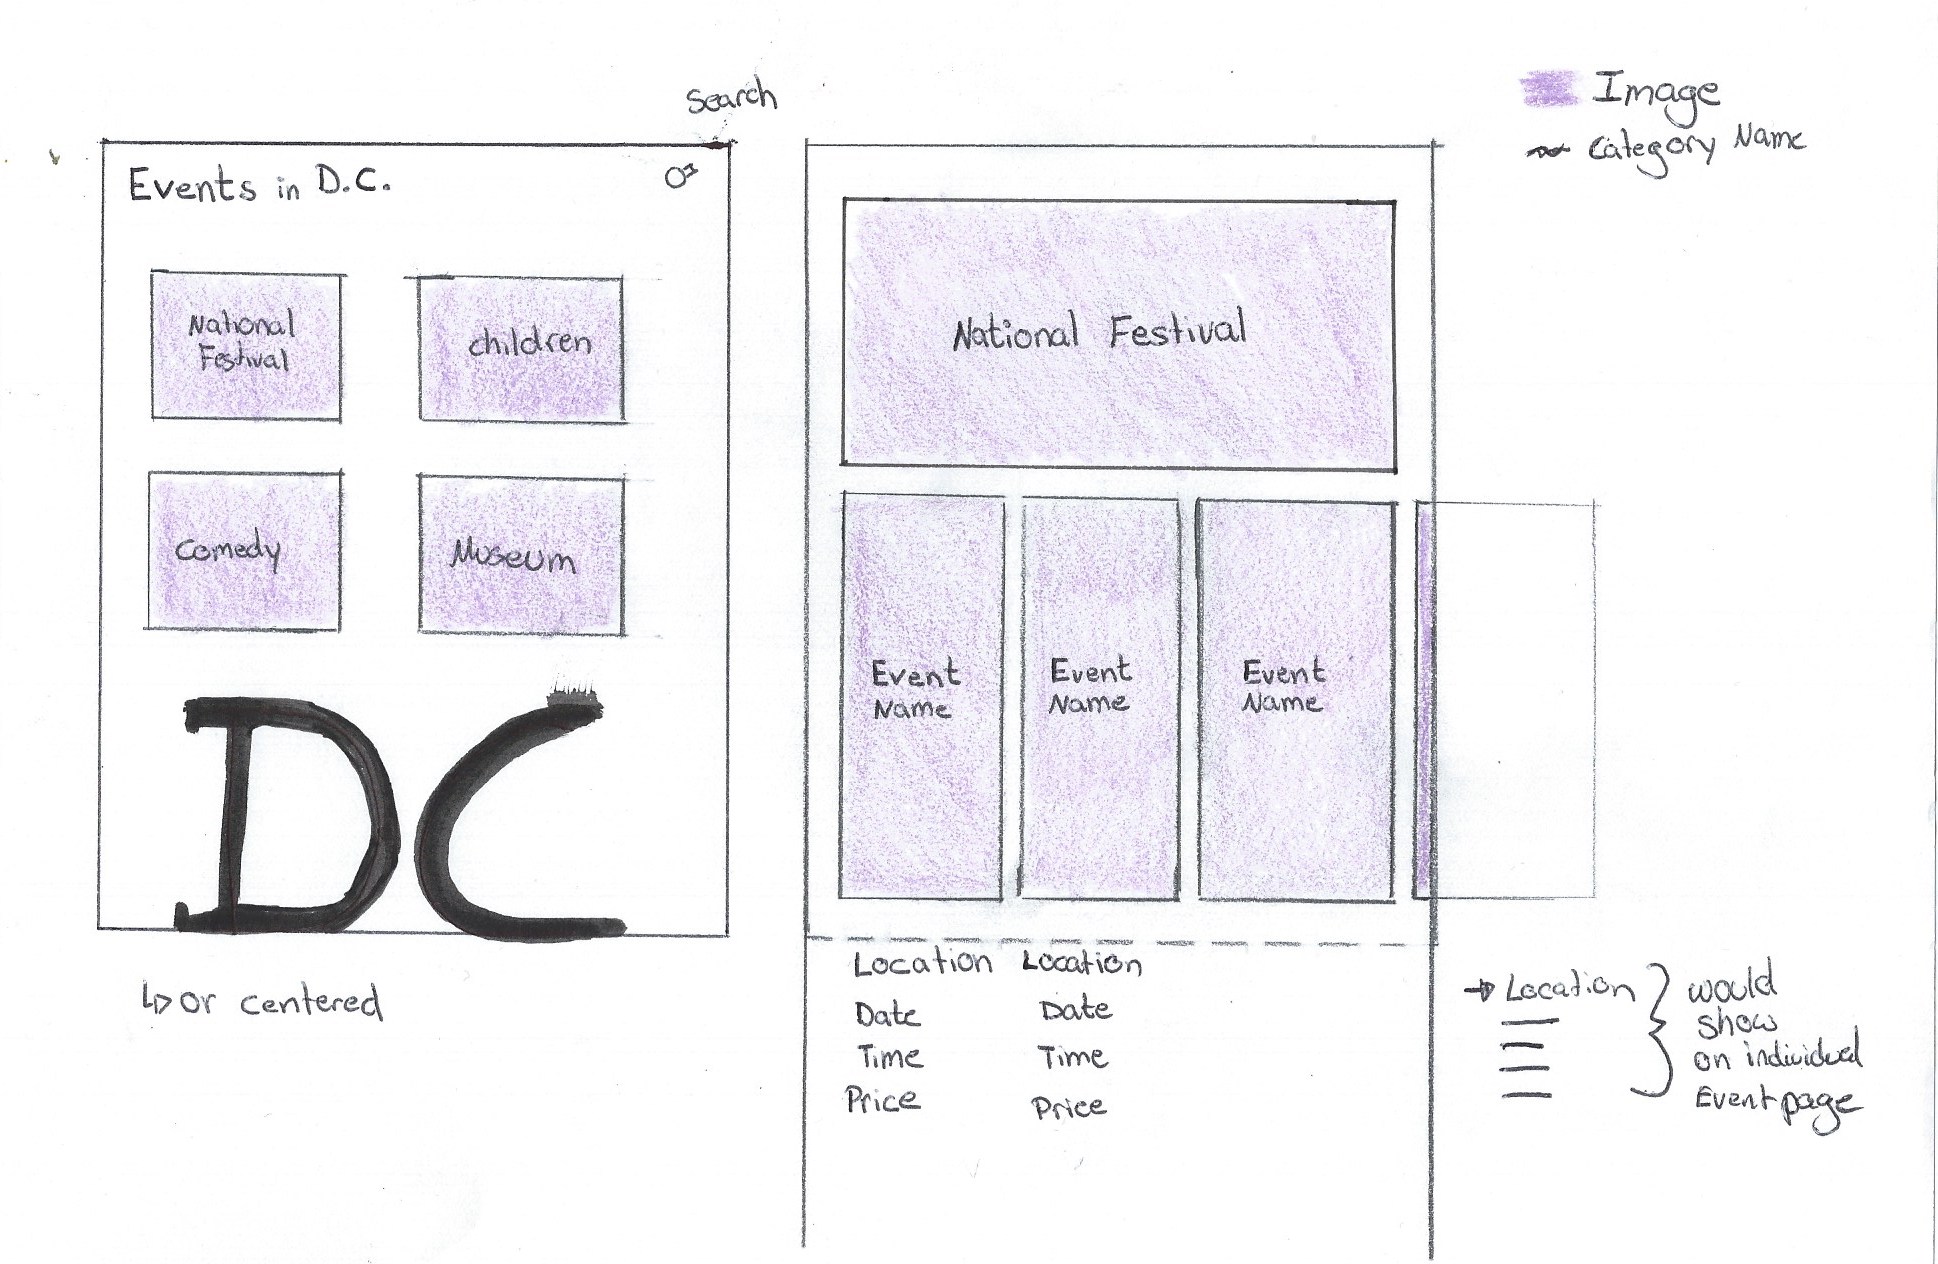 Search
Image
Category Name
Events in D.C.
National
Festival
children
Comedy
Museum
DC
or centered
National Festival
Event
Name
Event
Name
Event
Name
Location
Date
Time
Price
Location
Date
Time
Price
Location
would
show
on individual
Event page